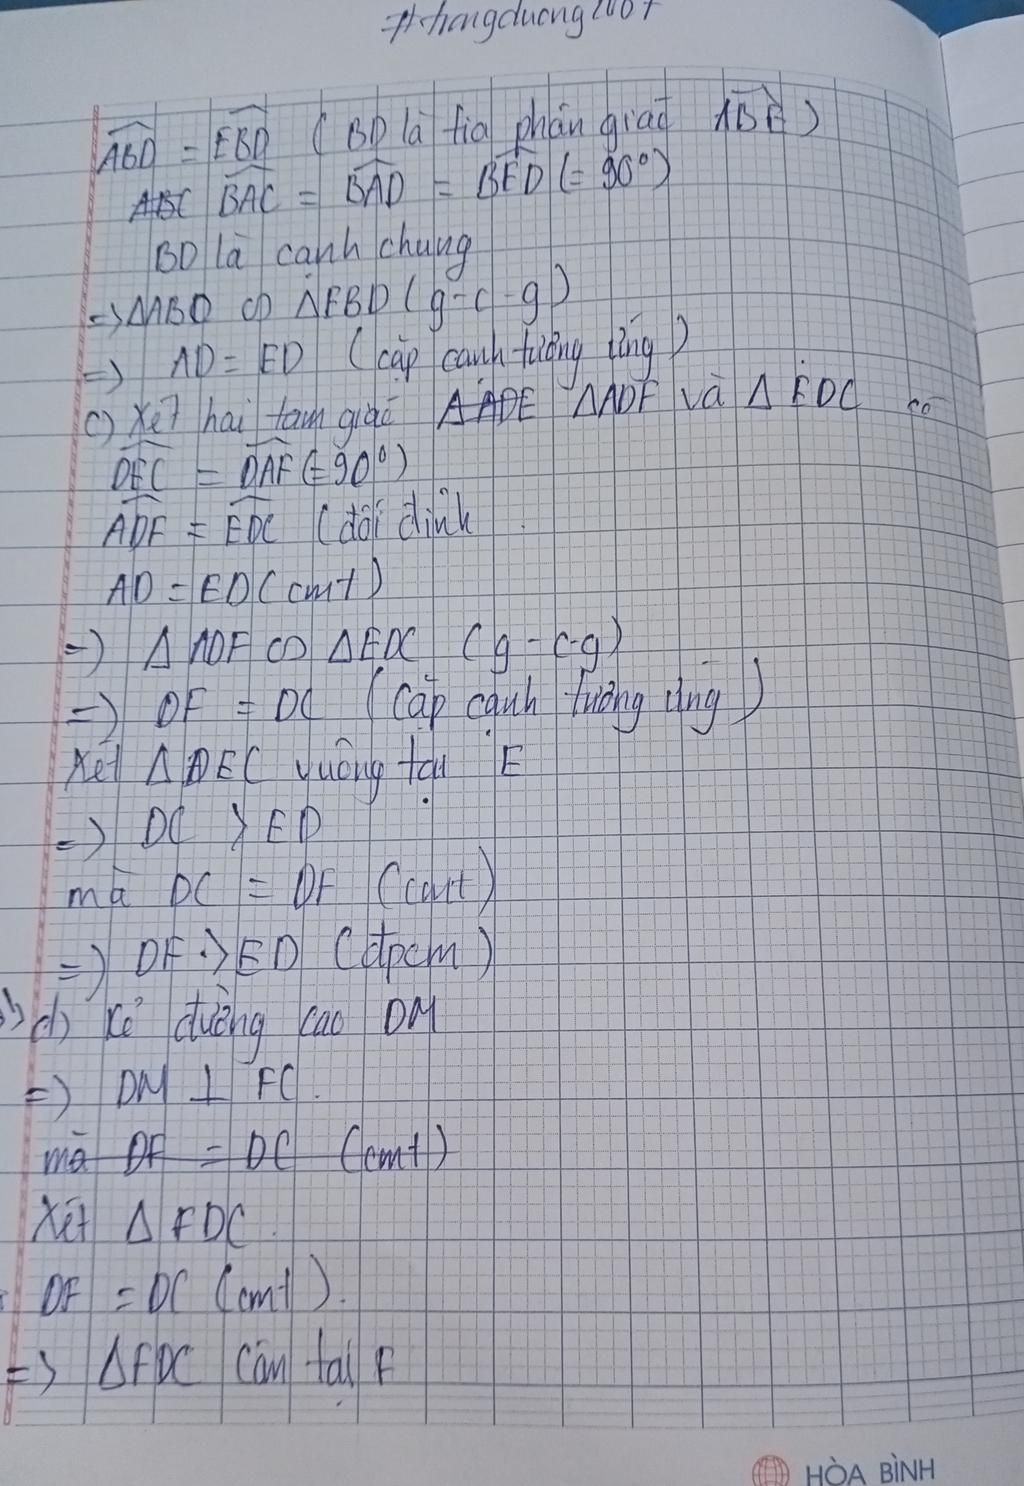 #thongduong2007
ABD = EBD (BD là tia phân giác ABE)
ABC BAC = BAD = BED (= 90°)
BD là cạnh chung
=> ΔABD ∽ ΔEBD (g-c-g)
=> AD = ED (cặp cạnh tương ứng)
c) Xét hai tam giác ΔADE ΔADF và ΔEDC có
DEC = DAF (=90°)
ADF = EDC (đối đỉnh
AD = ED (cmt)
=> ΔADF ∽ ΔEDC (g-c-g)
=> DF = DC (cặp cạnh tương ứng)
Xét ΔDEC vuông tại E
=> DC > ED
mà DC = DF (cmt)
=> DF > ED (đpcm)
d) Kẻ đường cao DM
=> DM ⊥ FC.
mà DF = DC (cmt)
Xét ΔFDC.
DF = DC (cmt).
=> ΔFDC cân tại F
HÒA BÌNH